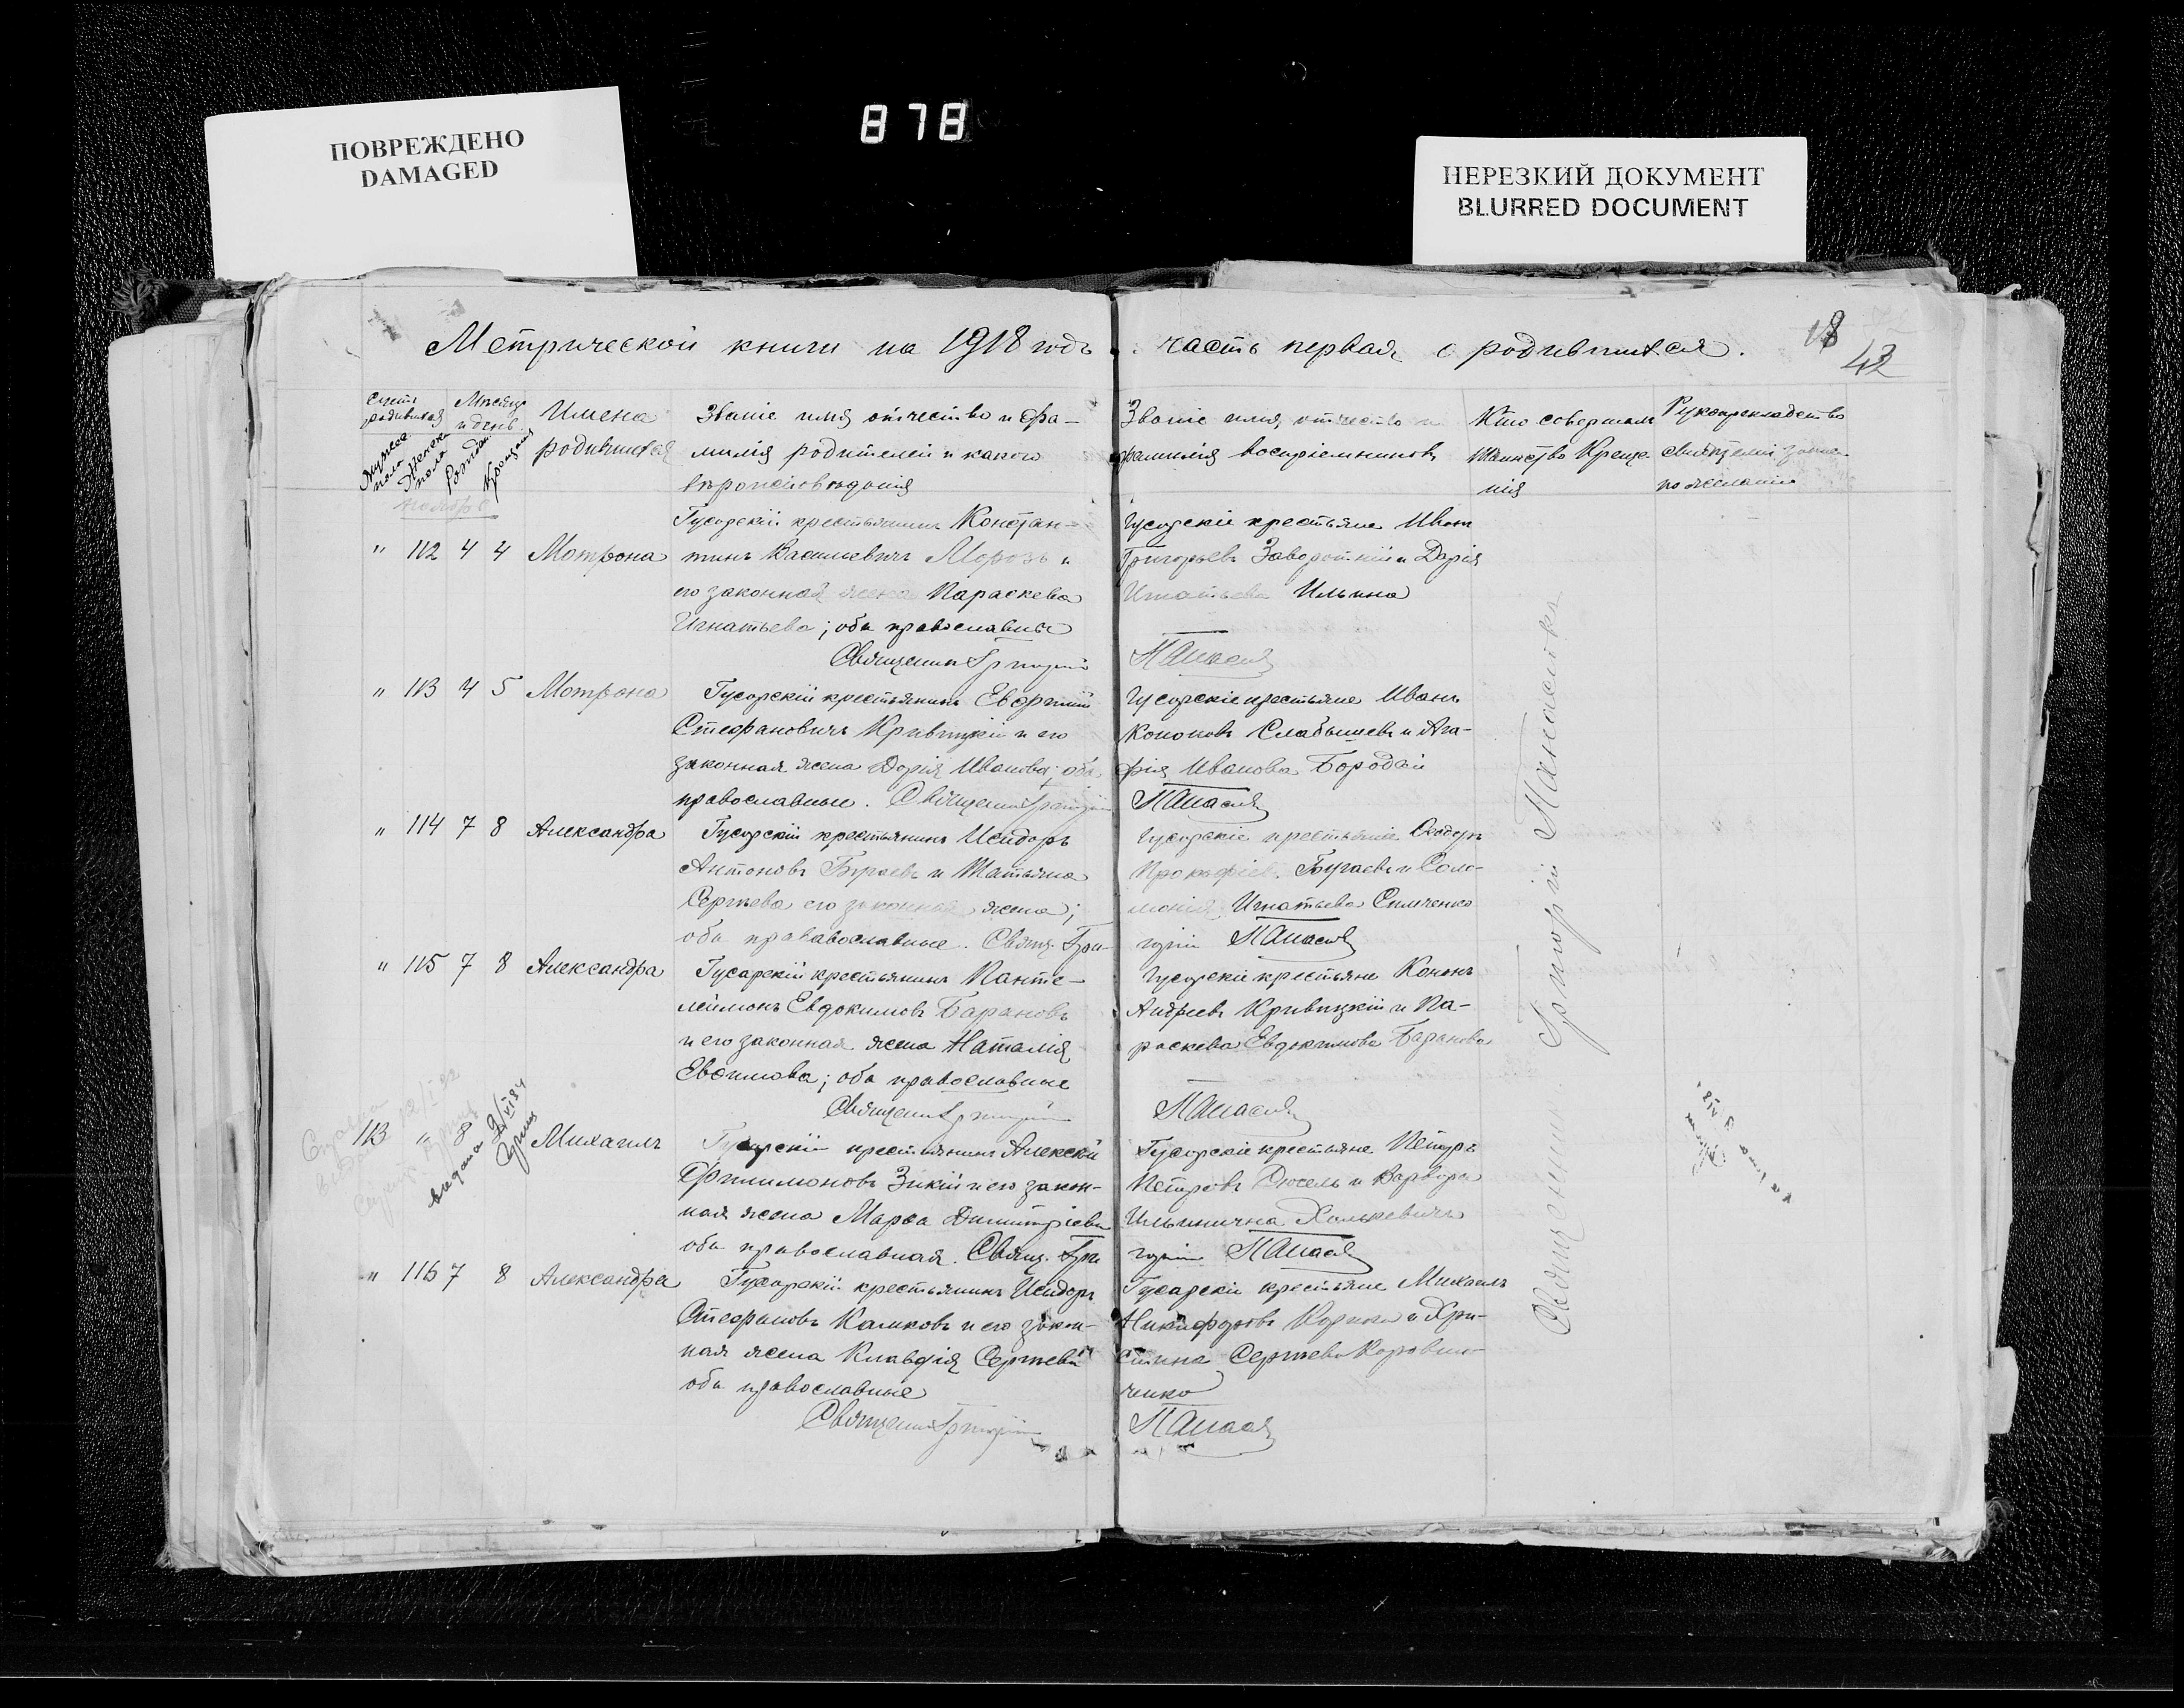 ПОВРЕЖДЕНО
DAMAGED
878
НЕРЕЗКИЙ ДОКУМЕНТ
BLURRED DOCUMENT
Метрической книги на 1918 годъ
часть первая о родившихся.
18
42
Счетъ родившихся
Мужеска пола
Женска пола
Мѣсяцъ и день
Рожден.
Крещения
Имена
родившихся
Званіе имя отчество и фа-
милія родителей и какого
вѣроисповѣданія
Званіе имя, отчество и
фамилія воспріемниковъ
Кто совершалъ
таинство Креще-
нія
Рукоприкладство
свидѣтелей записи
по желанію
Ноябрь
" 112 4 4 Мотрона
Гусарскій крестьянинъ Констан-
тинъ Василиевичъ Морозъ и
его законная жена Параскева
Игнатьева; оба православные
Священник Григорий
Гусарскіе крестьяне Иванъ
Григорьевъ Заворотній и Дарія
Игнатьева Ильина
Панасюк
" 113 4 5 Мотрона
Гусарскій крестьянинъ Евфимій
Стефановичъ Кривицкій и его
законная жена Дарія Иванова; оба
православные. Священник Григорий
Гусарскіе крестьяне Иванъ
Кононовъ Слабышевъ и Ага-
фія Иванова Бородай
Панасюк
" 114 7 8 Александра
Гусарскій крестьянинъ Исидоръ
Антоновъ Бугаевъ и Татьяна
Сергѣева его законная жена;
оба прававославные. Свящ. Гри-
Гусарскіе крестьяне Ѳеодоръ
Прокофіевъ Бугаевъ и Соло-
монія Игнатьева Симченко
горій Панасюк
" 115 7 8 Александра
Гусарскій крестьянинъ Панте-
леймонъ Евдокимовъ Барановъ
и его законная жена Наталія
Евфимова; оба православные
Священник Григорий
Гусарскіе крестьяне Кононъ
Андреевъ Кривицкій и Па-
раскева Евдокимова Баранова
Панасюк
113 " 8 Михаилъ
выдана
Гусарскій крестьянинъ Алексѣй
Филимоновъ Зикій и его закон-
ная жена Марѳа Димитріева
оба православная. Свящ. Гри
Гусарскіе крестьяне Петръ
Петровъ и Варвара
Ильинична Халькевичъ
горій Панасюк
" 116 7 8 Александра
Гусарскій крестьянинъ Исидоръ
Стефановъ Каликовъ и его закон-
ная жена Клавдія Сергѣева
оба православные
Священник Григорий
Гусарскіе крестьяне Михаилъ
Никифоровъ и Хри-
стина Сергѣева Коровни-
ченко
Панасюк
Священник Григорій Панасюкъ